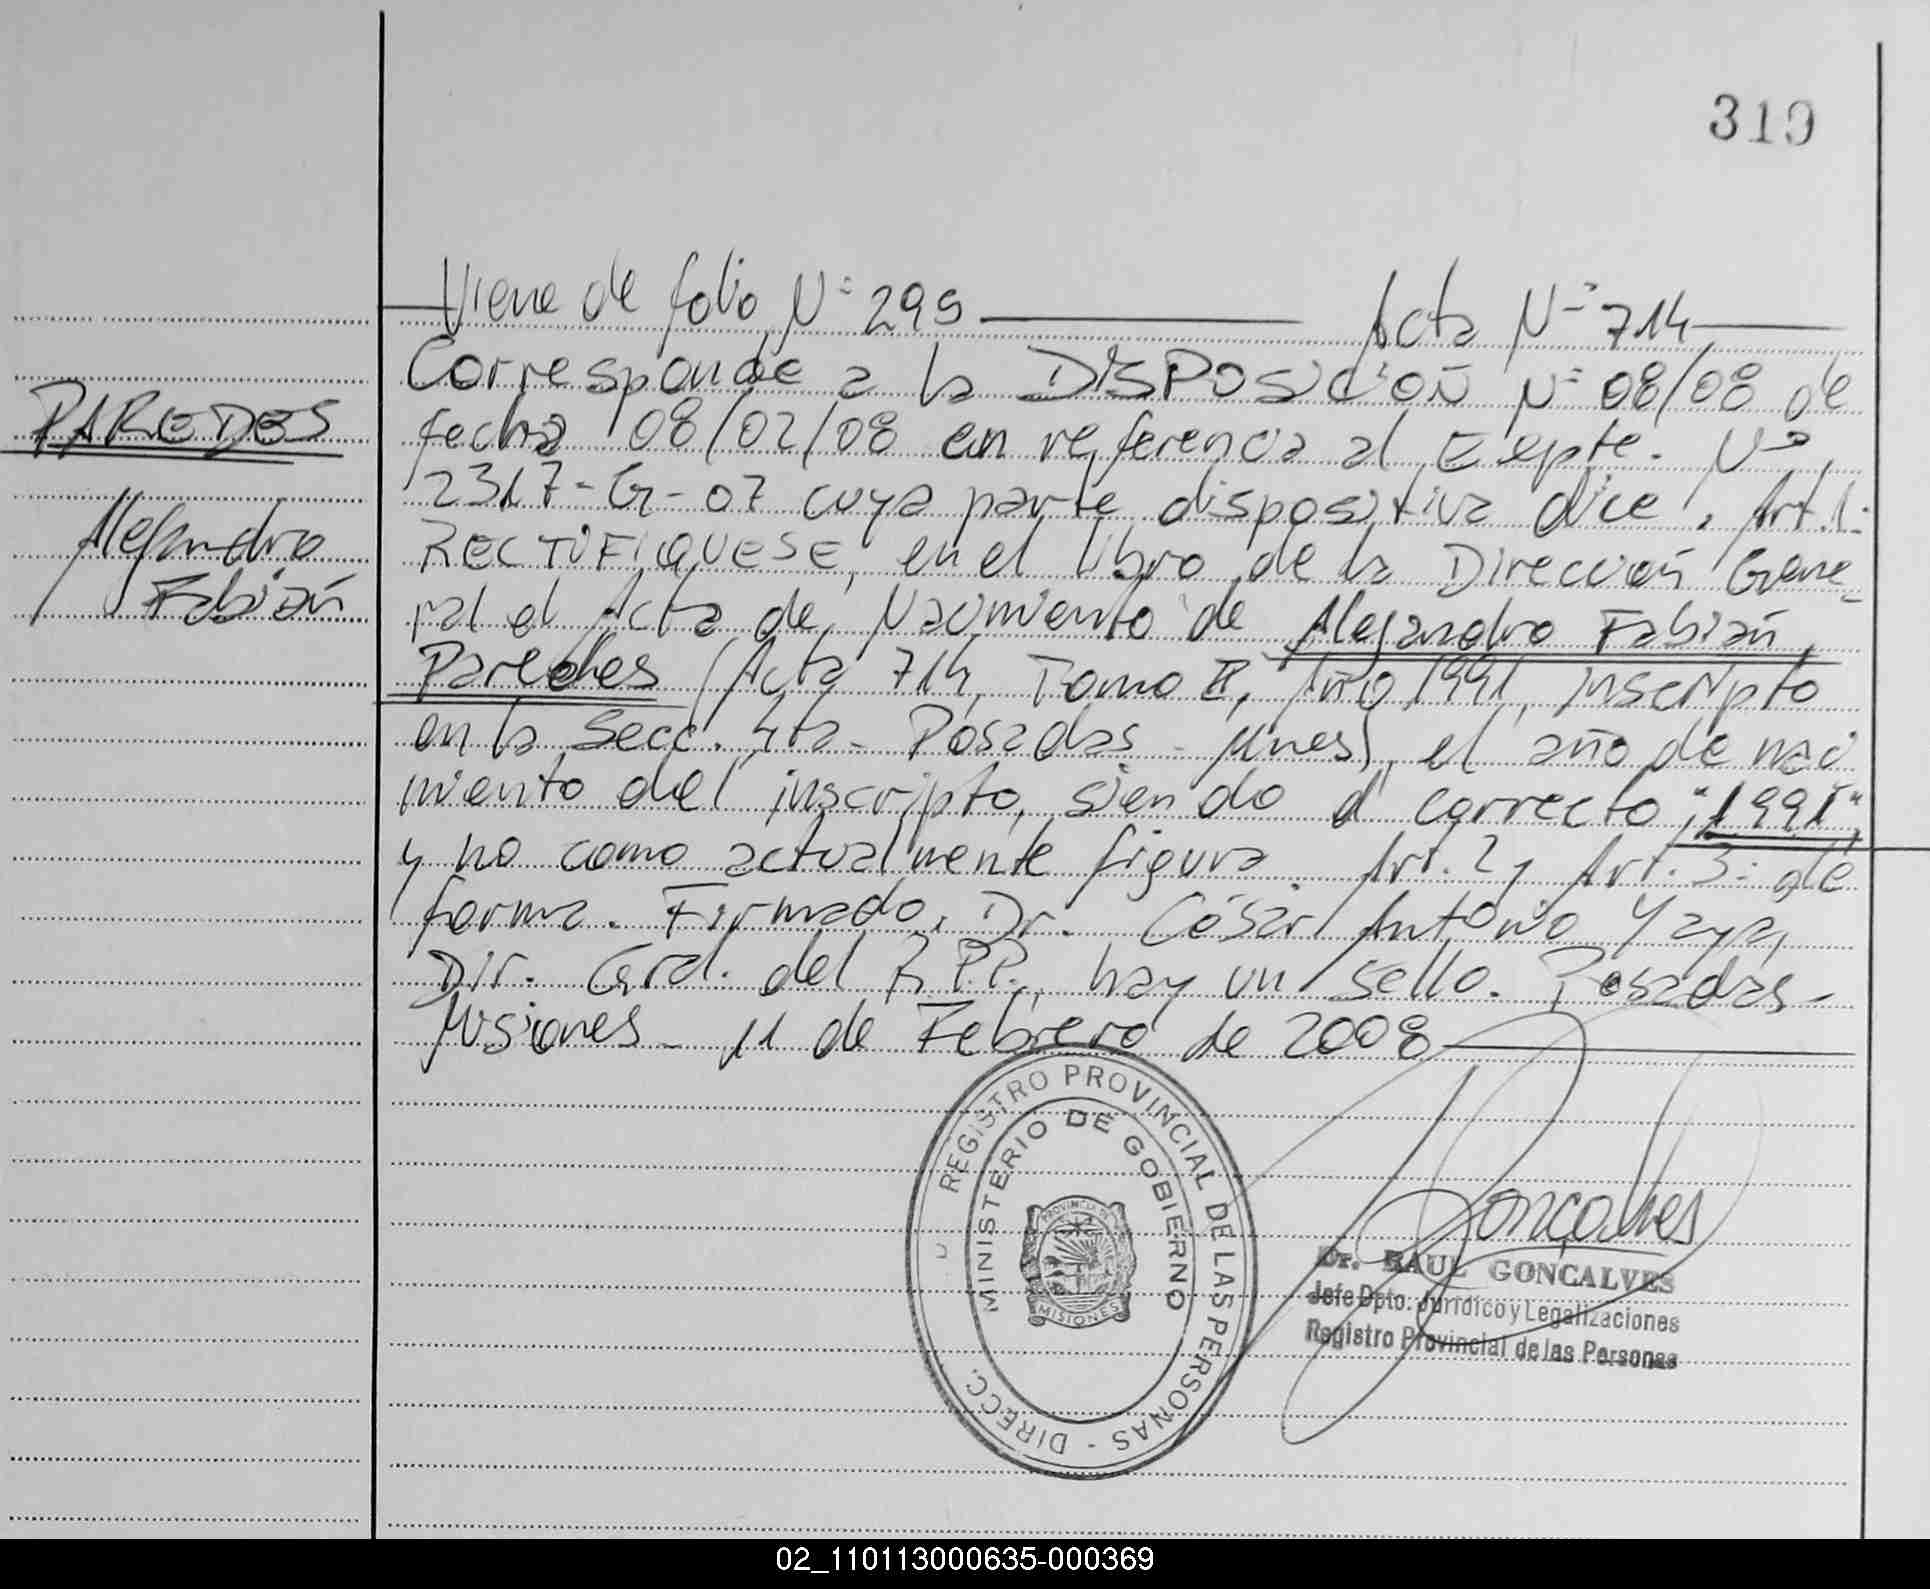 319
Viene de folio N° 299 Acta N° 714
Corresponde a la DISPOSICIÓN N° 08/08 de
PAREDES
fecha 08/02/08 en referencia al Expte. N°
2317-G-07 cuya parte dispositiva dice, Art.1:
Alejandro
RECTIFIQUESE, en el libro de la Dirección Gene
Fabián
ral el Acta de Nacimiento de Alejandro Fabián
Paredes (Acta 714, Tomo II, Año 1991, inscripto
en la Secc. 4ta - Posadas - Mnes) el año de naci
miento del inscripto, siendo el correcto "1991",
y no como actualmente figura. Art. 2 y Art. 3: de
forma. Firmado, Dr. César Antonio Yaya,
Dir. Gral. del R.P.P., hay un sello. Posadas -
Misiones - 11 de Febrero de 2008
REGISTRO PROVINCIAL DE LAS PERSONAS - DIRECC.
MINISTERIO DE GOBIERNO
PROVINCIA DE
MISIONES
Gonçalves
Dr. RAUL GONCALVES
Jefe Dpto. Jurídico y Legalizaciones
Registro Provincial de las Personas
02_110113000635-000369